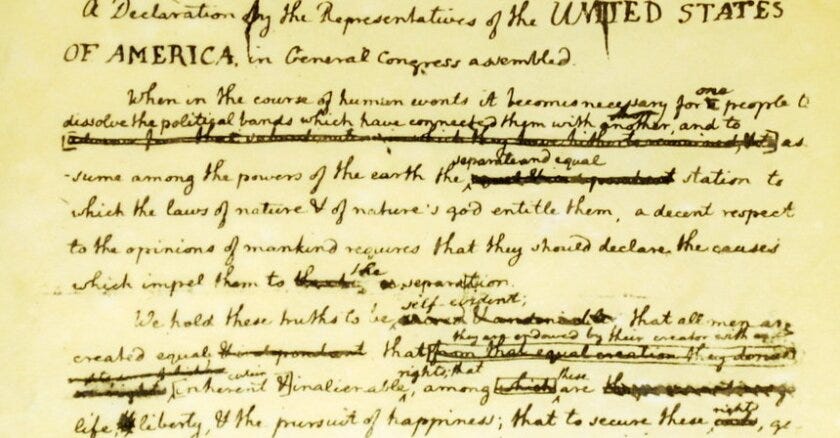 A Declaration by the Representatives of the UNITED STATES
OF AMERICA, in General Congress assembled.
When in the course of human events it becomes necessary for one people to
dissolve the political bands which have connected them with another, and to
as
-sume among the powers of the earth the separate and equal station to
which the laws of nature & of nature's god entitle them, a decent respect
to the opinions of mankind requires that they should declare the causes
which impel them to the separation.
We hold these truths to be self-evident; that all men are
created equal that they are endowed by their creator with
from that equal creation they derive
[inherent &] inalienable rights; that among [which] these are
life, liberty, & the pursuit of happiness; that to secure these rights,